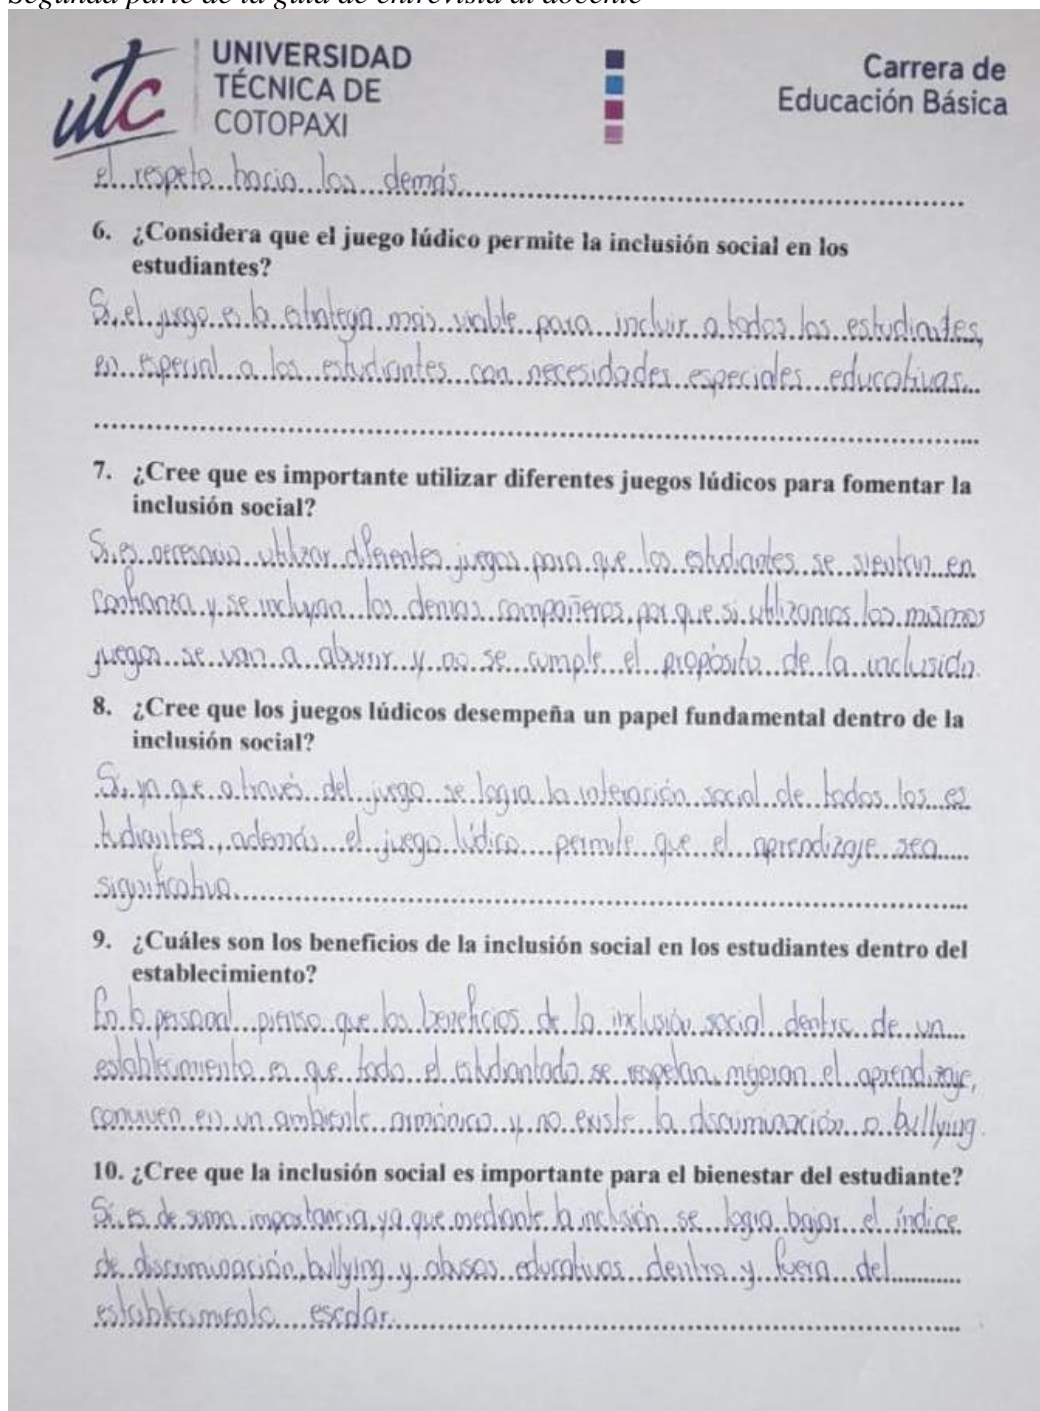 Segunda parte de la guía de entrevista al docente
utc
UNIVERSIDAD
TÉCNICA DE
COTOPAXI
Carrera de
Educación Básica
el respeto hacia los demás.
6. ¿Considera que el juego lúdico permite la inclusión social en los
estudiantes?
Si, el juego es la estrategia más viable para incluir a todos los estudiantes,
en especial a los estudiantes con necesidades especiales educativas.
7. ¿Cree que es importante utilizar diferentes juegos lúdicos para fomentar la
inclusión social?
Si, es necesario utilizar diferentes juegos para que los estudiantes se sientan en
confianza y se incluyan los demas compañeros, por que si utilizamos los mismos
juegos se van a aburrir y no se cumple el propósito de la inclusión.
8. ¿Cree que los juegos lúdicos desempeña un papel fundamental dentro de la
inclusión social?
Si, ya que a través del juego se logra la interación social de todos los es
tudiantes, además el juego lúdico permite que el aprendizaje sea
significativo.
9. ¿Cuáles son los beneficios de la inclusión social en los estudiantes dentro del
establecimiento?
En lo personal pienso que los beneficios de la inclusión social dentro de un
establecimiento es que todo el estudiantado se respetan, mejoran el aprendizaje,
conviven en un ambiente armónico y no existe la discriminación o bullying.
10. ¿Cree que la inclusión social es importante para el bienestar del estudiante?
Si, es de suma importancia, ya que mediante la inclusión se logra bajar el índice
de discriminación, bullying y abusos educativos dentro y fuera del
establecimiento escolar.